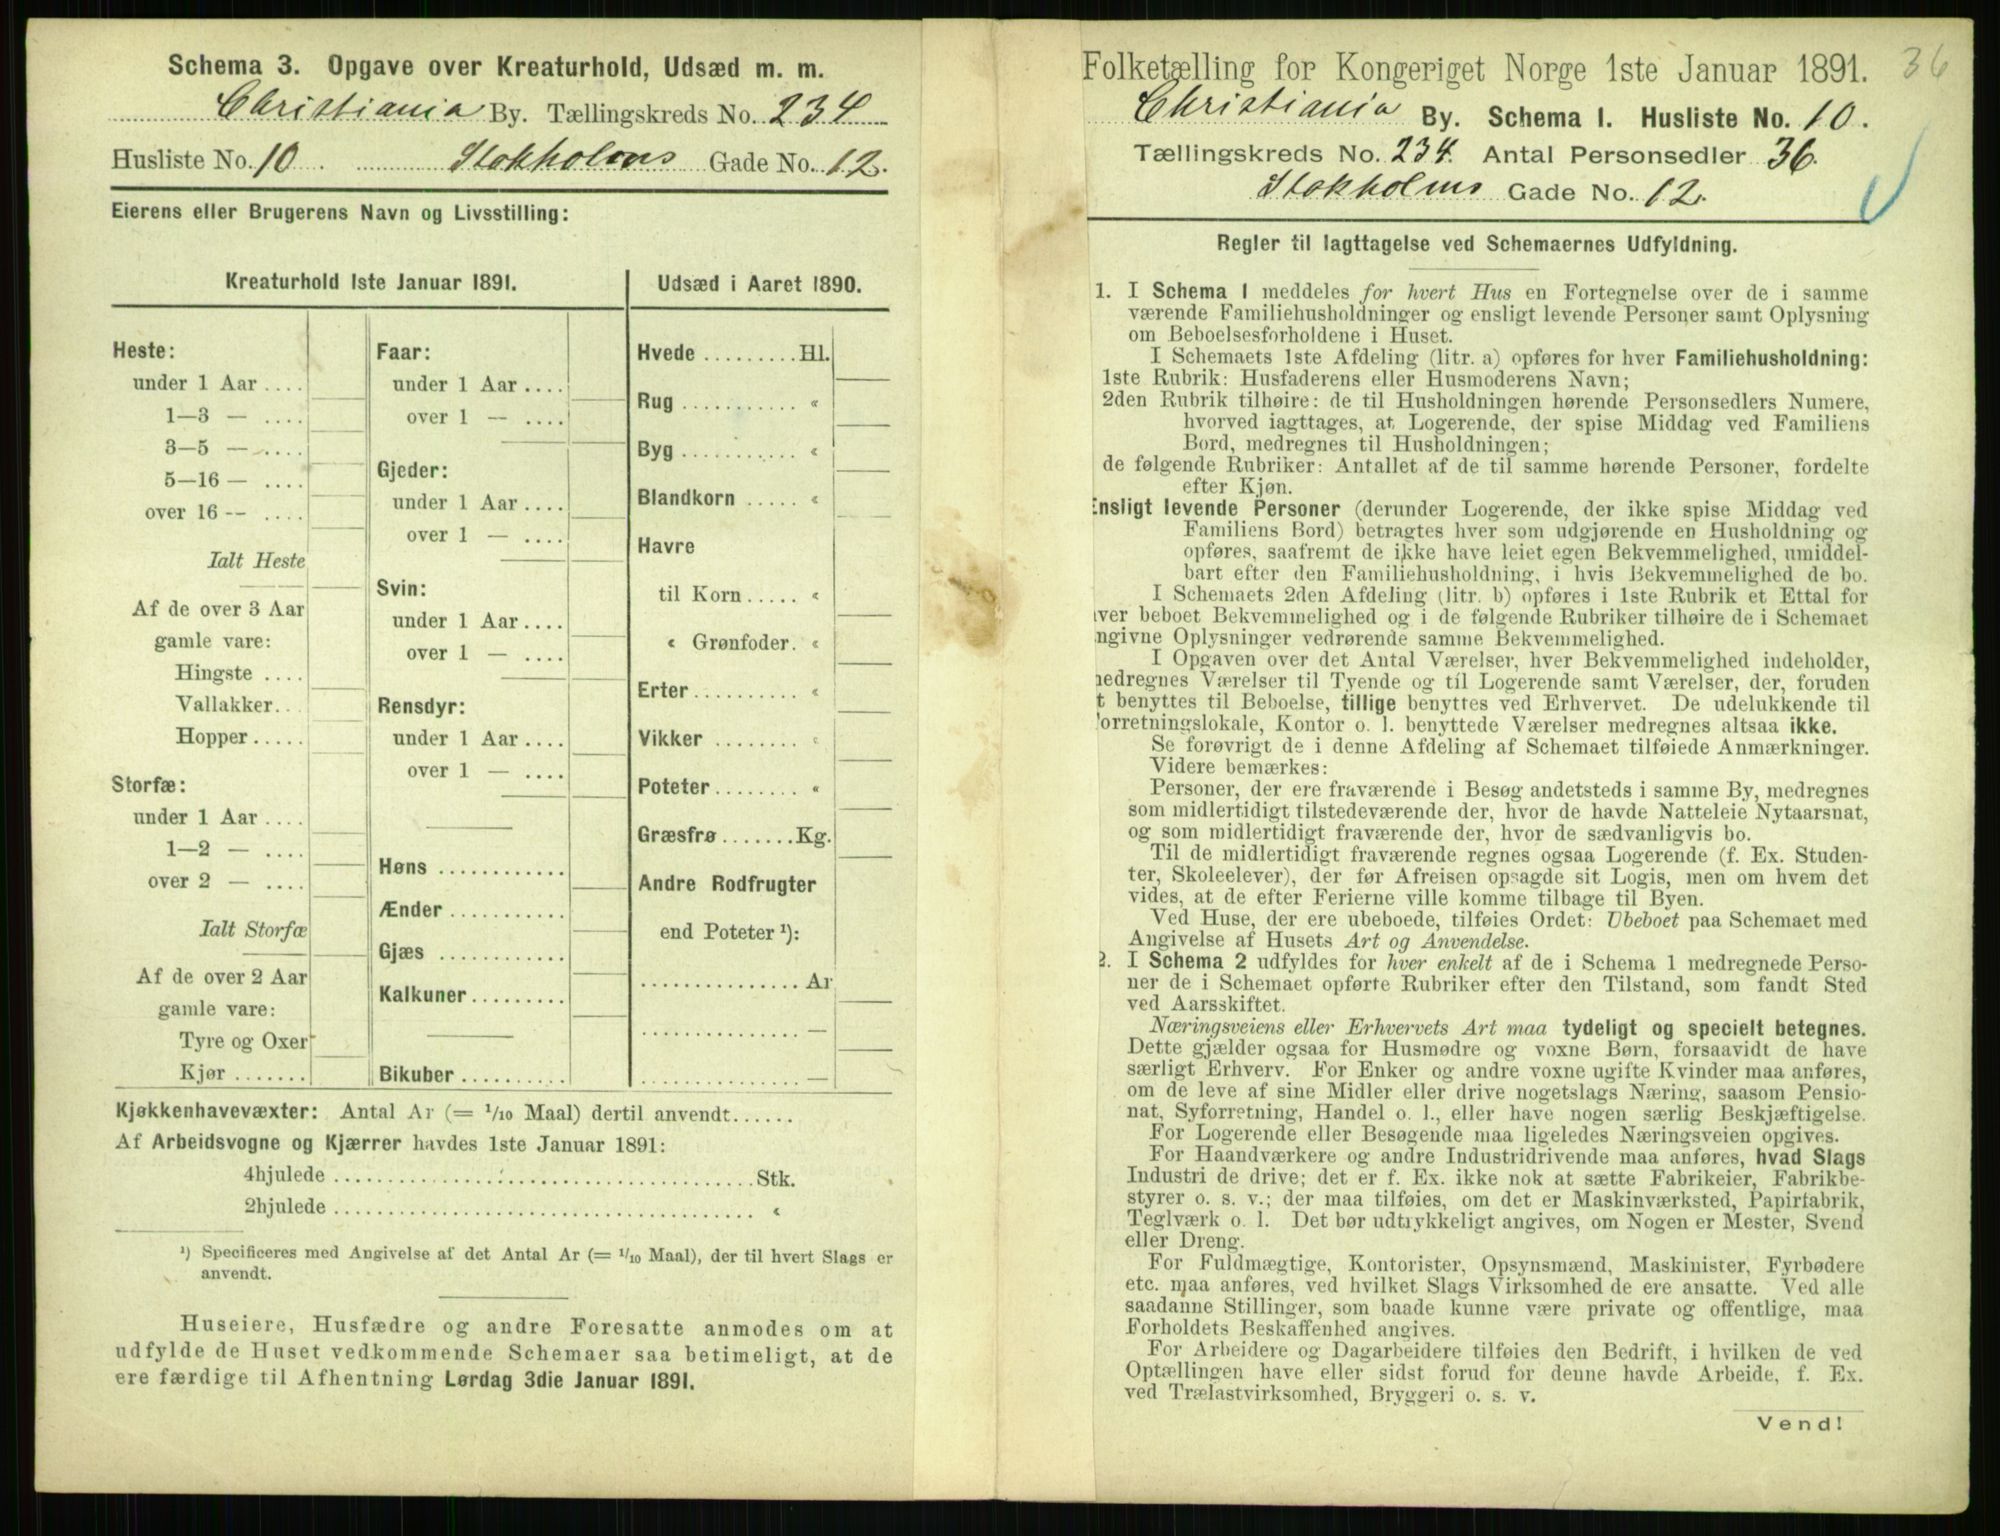 Schema 3. Opgave over Kreaturhold, Udsæd m. m.
Christiania By. Tællingskreds No. 234
Husliste No. 10 Stokholms Gade No. 12.
Eierens eller Brugerens Navn og Livsstilling:
Kreaturhold 1ste Januar 1891.
Heste:
under 1 Aar ....
1—3 — ....
3—5 — ....
5—16 — ....
over 16 -- ....
Ialt Heste
Af de over 3 Aar
gamle vare:
Hingste ....
Vallakker..
Hopper.....
Storfæ:
under 1 Aar ....
1—2 — ....
over 2 — ....
Ialt Storfæ
Af de over 2 Aar
gamle vare:
Tyre og Oxer
Kjør.......
Faar:
under 1 Aar ....
over 1 — ....
Gjeder:
under 1 Aar ....
over 1 — ....
Svin:
under 1 Aar....
over 1 — ....
Rensdyr:
under 1 Aar ....
over 1 — ....
Høns ............
Ænder ...........
Gjæs ............
Kalkuner.........
Bikuber ..........
Udsæd i Aaret 1890.
Hvede .........Hl.
Rug ........... «
Byg ........... «
Blandkorn ..... «
Havre
til Korn..... «
« Grønfoder. «
Erter.......... «
Vikker ........ «
Poteter........ «
Græsfrø .......Kg.
Andre Rodfrugter
end Poteter ¹):
............... Ar
............... —
............... —
Kjøkkenhavevæxter: Antal Ar (= 1/10 Maal) dertil anvendt......
Af Arbeidsvogne og Kjærrer havdes 1ste Januar 1891:
4hjulede ........................................Stk.
2hjulede ........................................ «
¹) Specificeres med Angivelse af det Antal Ar (= 1/10 Maal), der til hvert Slags er
anvendt.
Huseiere, Husfædre og andre Foresatte anmodes om at
udfylde de Huset vedkommende Schemaer saa betimeligt, at de
ere færdige til Afhentning Lørdag 3die Januar 1891.
Folketælling for Kongeriget Norge 1ste Januar 1891. 36
Christiania By. Schema 1. Husliste No. 10.
Tællingskreds No. 234. Antal Personsedler 36.
Stokholms Gade No. 12.
Regler til Iagttagelse ved Schemaernes Udfyldning.
1. I Schema 1 meddeles for hvert Hus en Fortegnelse over de i samme
værende Familiehusholdninger og ensligt levende Personer samt Oplysning
om Beboelsesforholdene i Huset.
I Schemaets 1ste Afdeling (litr. a) opføres for hver Familiehusholdning:
1ste Rubrik: Husfaderens eller Husmoderens Navn;
2den Rubrik tilhøire: de til Husholdningen hørende Personsedlers Numere,
hvorved iagttages, at Logerende, der spise Middag ved Familiens
Bord, medregnes til Husholdningen;
de følgende Rubriker: Antallet af de til samme hørende Personer, fordelte
efter Kjøn.
Ensligt levende Personer (derunder Logerende, der ikke spise Middag ved
Familiens Bord) betragtes hver som udgjørende en Husholdning og
opføres, saafremt de ikke have leiet egen Bekvemmelighed, umiddel-
bart efter den Familiehusholdning, i hvis Bekvemmelighed de bo.
I Schemaets 2den Afdeling (litr. b) opføres i 1ste Rubrik et Ettal for
ver beboet Bekvemmelighed og i de følgende Rubriker tilhøire de i Schemaet
ngivne Oplysninger vedrørende samme Bekvemmelighed.
I Opgaven over det Antal Værelser, hver Bekvemmelighed indeholder,
nedregnes Værelser til Tyende og til Logerende samt Værelser, der, foruden
t benyttes til Beboelse, tillige benyttes ved Erhvervet. De udelukkende til
orretningslokale, Kontor o. l. benyttede Værelser medregnes altsaa ikke.
Se forøvrigt de i denne Afdeling af Schemaet tilføiede Anmærkninger.
Videre bemærkes:
Personer, der ere fraværende i Besøg andetsteds i samme By, medregnes
som midlertidigt tilstedeværende der, hvor de havde Natteleie Nytaarsnat,
og som midlertidigt fraværende der, hvor de sædvanligvis bo.
Til de midlertidigt fraværende regnes ogsaa Logerende (f. Ex. Studen-
ter, Skoleelever), der før Afreisen opsagde sit Logis, men om hvem det
vides, at de efter Ferierne ville komme tilbage til Byen.
Ved Huse, der ere ubeboede, tilføies Ordet: Ubeboet paa Schemaet med
Angivelse af Husets Art og Anvendelse.
2. I Schema 2 udfyldes for hver enkelt af de i Schema 1 medregnede Perso-
ner de i Schemaet opførte Rubriker efter den Tilstand, som fandt Sted
ved Aarsskiftet.
Næringsveiens eller Erhvervets Art maa tydeligt og specielt betegnes.
Dette gjælder ogsaa for Husmødre og voxne Børn, forsaavidt de have
særligt Erhverv. For Enker og andre voxne ugifte Kvinder maa anføres,
om de leve af sine Midler eller drive nogetslags Næring, saasom Pensio-
nat, Syforretning, Handel o. l., eller have nogen særlig Beskjæftigelse.
For Logerende eller Besøgende maa ligeledes Næringsveien opgives.
For Haandværkere og andre Industridrivende maa anføres, hvad Slags
Industri de drive; det er f. Ex. ikke nok at sætte Fabrikeier, Fabrikbe-
styrer o. s. v.; der maa tilføies, om det er Maskinværksted, Papirfabrik,
Teglværk o. l. Det bør udtrykkeligt angives, om Nogen er Mester, Svend
eller Dreng.
For Fuldmægtige, Kontorister, Opsynsmænd, Maskinister, Fyrbødere
etc. maa anføres, ved hvilket Slags Virksomhed de ere ansatte. Ved alle
saadanne Stillinger, som baade kunne være private og offentlige, maa
Forholdets Beskaffenhed angives.
For Arbeidere og Dagarbeidere tilføies den Bedrift, i hvilken de ved
Optællingen have eller sidst forud for denne havde Arbeide, f. Ex.
ved Trælastvirksomhed, Bryggeri o. s. v.
Vend!